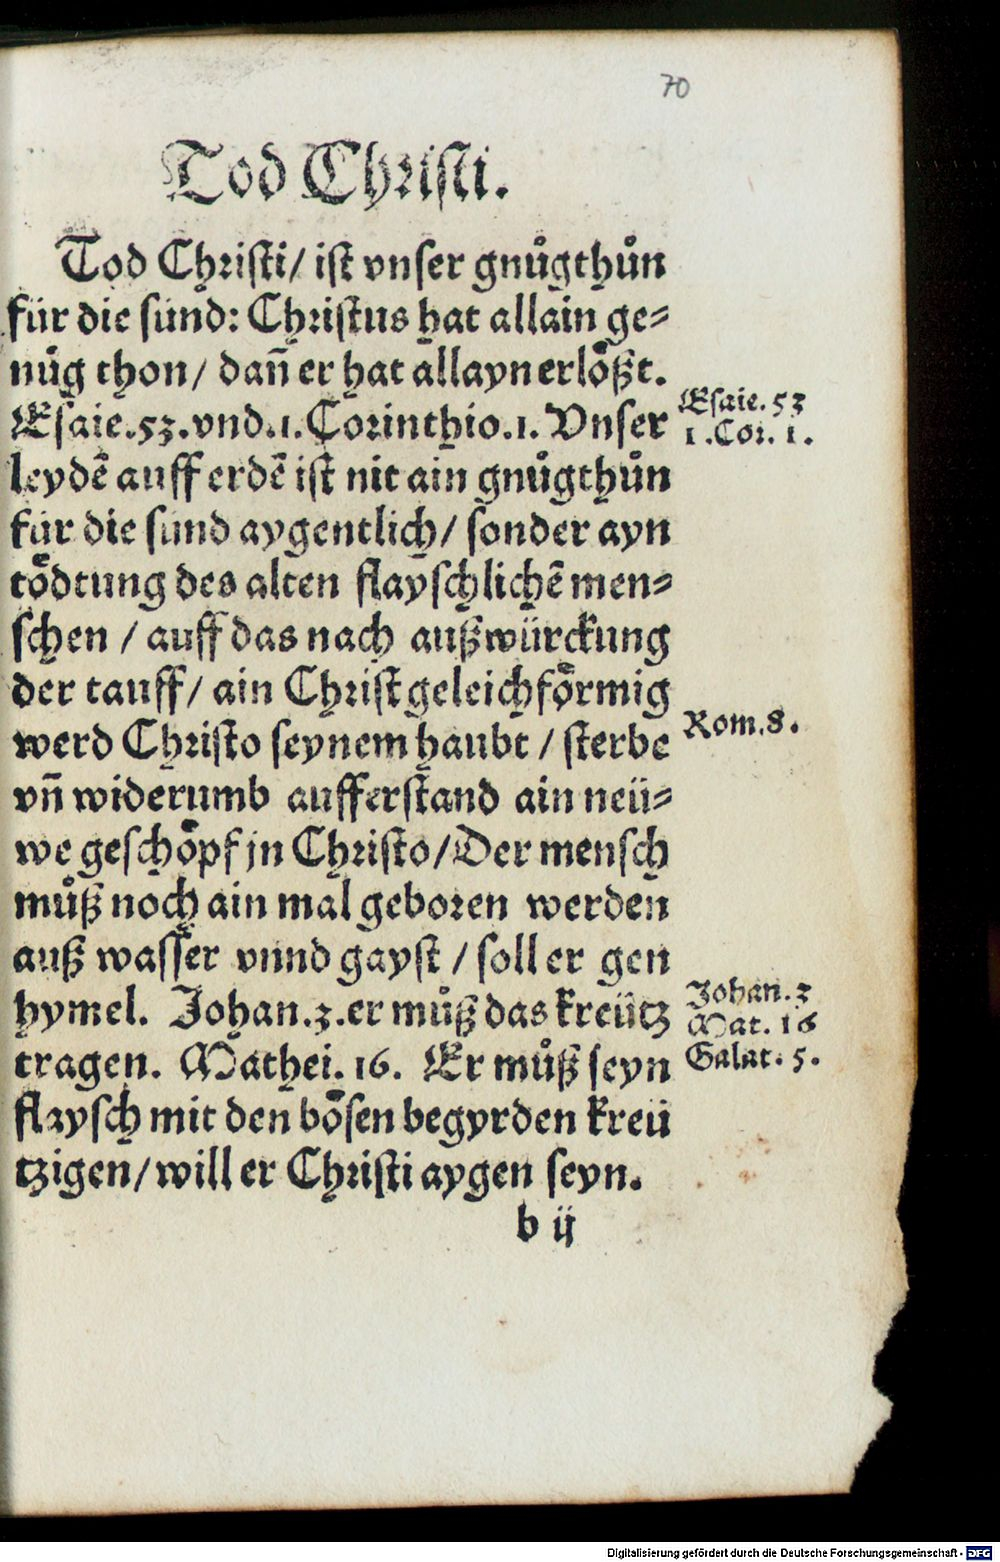 70
Tod Christi.
Tod Christi/ ist vnser gnůgthůn
für die sünd: Christus hat allain ge⸗
nůg thon/ dañ er hat allayn erlößt.
Esaie.53.vnd.1.Corinthio.1. Vnser
Esaie.53
1.Cor. 1.
leydē auff erdē ist nit ain gnůgthůn
für die sünd aygentlich/ sonder ayn
tödtung des alten flayschlichē men⸗
schen / auff das nach außwürckung
der tauff/ ain Christ geleichförmig
werd Christo seynem haubt / sterbe
Rom.8.
vñ widerumb aufferstand ain neü⸗
we geschöpf jn Christo/Der mensch
můß noch ain mal geboren werden
auß wasser vnnd gayst / soll er gen
hymel. Johan.3.er můß das kreütz
Johan.3
Mat. 16
tragen. Mathei. 16. Er můß seyn
Galat. 5.
flaysch mit den bösen begyrden kreü
tzigen/will er Christi aygen seyn.
b ij
Digitalisierung gefördert durch die Deutsche Forschungsgemeinschaft - DFG